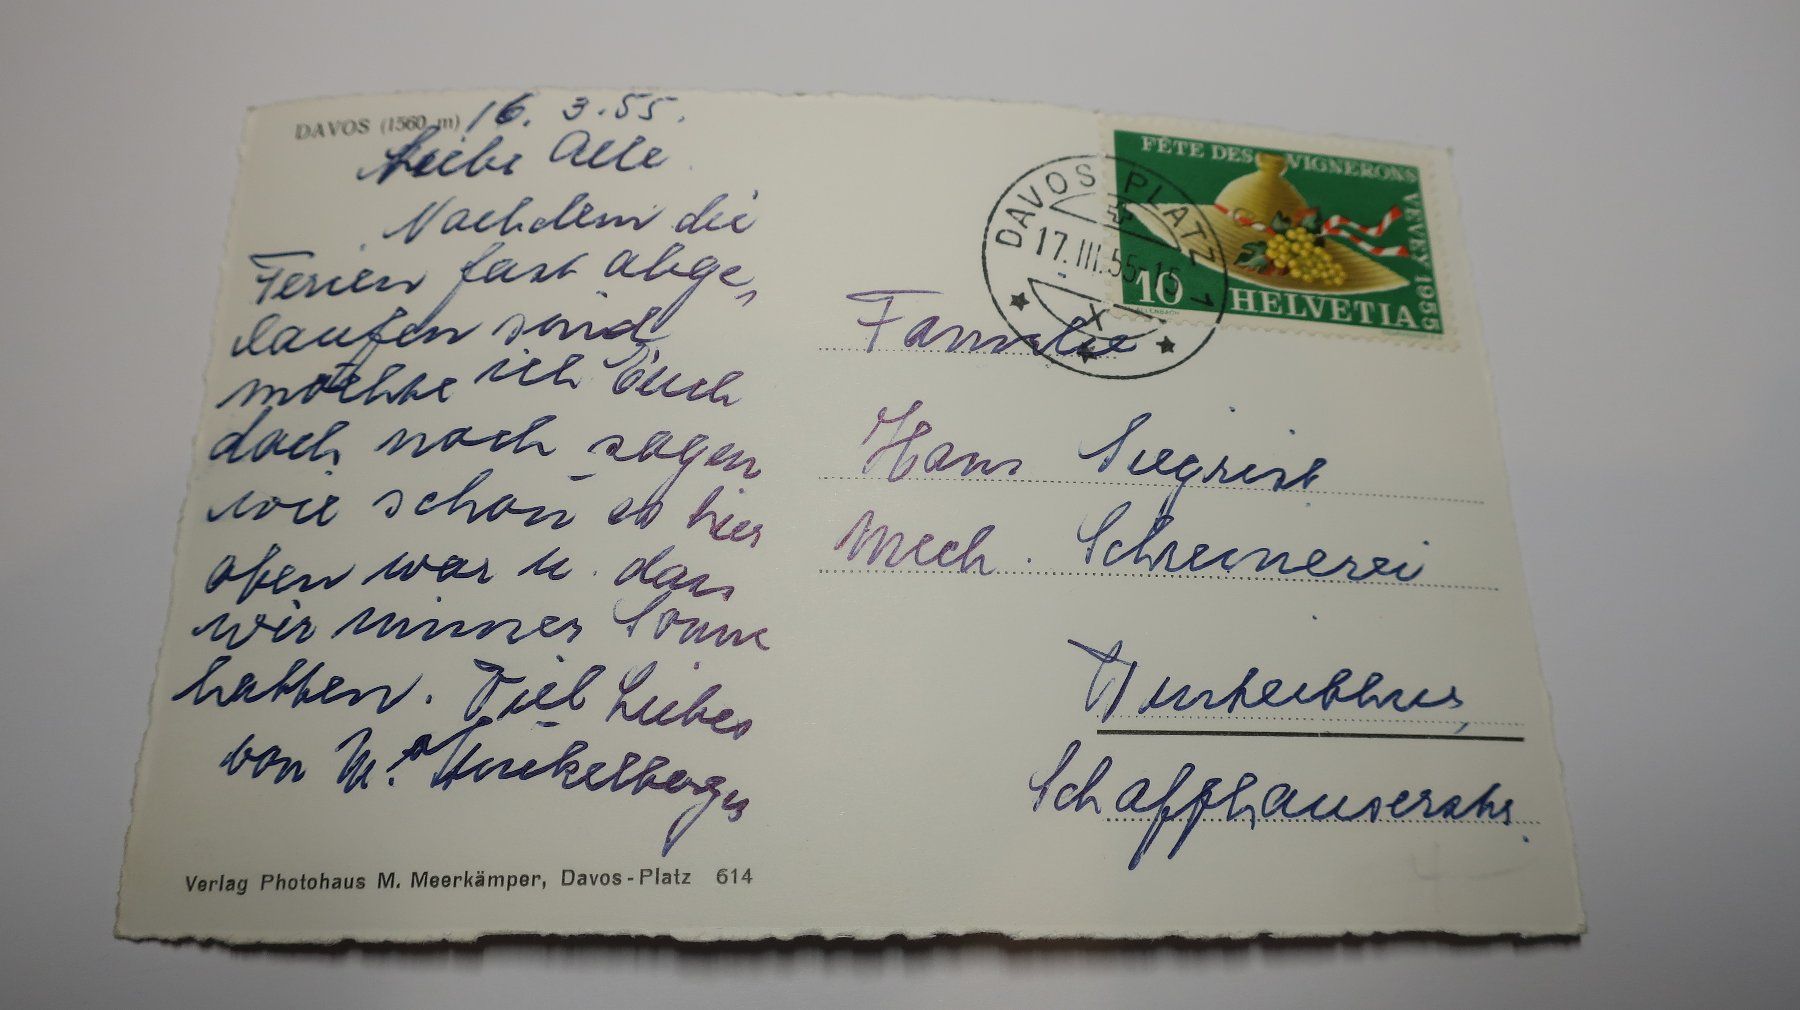 DAVOS (1560 m)
16. 3. 55.
Liebe Alle
Nachdem die
Ferien fast abge-
laufen sind
möchte ich Euch
doch noch sagen
wie schön es hier
oben war u. dass
wir immer Sonne
hatten. Viel Liebes
von M.
Verlag Photohaus M. Meerkämper, Davos-Platz 614
FÊTE DES VIGNERONS
VEVEY 1955
10 HELVETIA
DAVOS PLATZ 1
17.III.55-15
X
Familie
Hans Siegrist
Mech. Schreinerei
Winterthur
Schaffhauserstr.